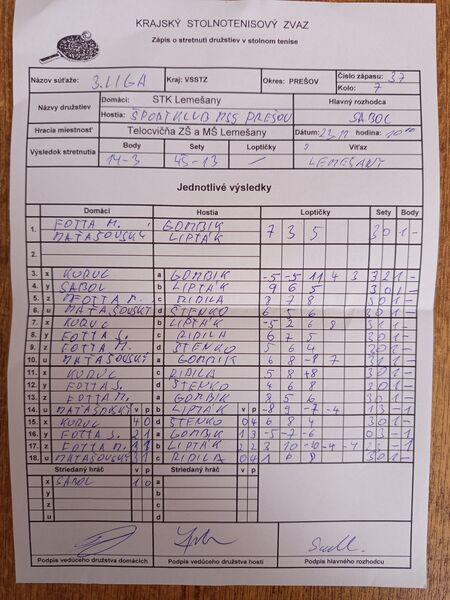 KRAJSKÝ STOLNOTENISOVÝ ZVAZ
Zápis o stretnutí družstiev v stolnom tenise
Názov súťaže: 3. LIGA Kraj: VSSTZ Okres: PREŠOV Číslo zápasu: 37
Kolo: 7
Názvy družstiev Domáci: STK Lemešany Hlavný rozhodca
Hostia: ŠPORTKLUB MŠŠ PREŠOV SABOL
Hracia miestnosť Telocvičňa ZŠ a MŠ Lemešany Dátum: hodina: 10
Výsledok stretnutia Body Sety Loptičky Víťaz
14-3 45-13 / LEMEŠANY
Jednotlivé výsledky
Domáci Hostia Loptičky Sety Body
1. FOTTA M. GOMBIK 7 3 5 3 0 1 -
MATAŠOVSKÝ LIPTÁK
2.
3. x KURUC a GOMBIK -5 -5 11 4 3 3 2 1 -
4. y SABOL b LIPTÁK 9 6 5 3 0 1 -
5. z FOTTA M. c RIDILA 8 7 8 3 0 1 -
6. u MATAŠOVSKÝ d STENKO 6 5 6 3 0 1 -
7. x KURUC b LIPTÁK -5 2 6 8 3 1 1 -
8. y FOTTA S. c RIDILA 6 7 5 3 0 1 -
9. z FOTTA M. d STENKO 5 6 4 3 0 1 -
10. u MATAŠOVSKÝ a GOMBIK 6 8 -8 7 3 1 1 -
11. x KURUC c RIDILA 5 8 8 3 0 1 -
12. y FOTTA S. d STENKO 4 6 8 3 0 1 -
13. z FOTTA M. a GOMBIK 8 5 6 3 0 1 -
14. u MATAŠOVSKÝ v p b LIPTÁK v p -8 9 -7 -4 1 3 - 1
15. x KURUC 4 0 d STENKO 0 4 6 8 4 3 0 1 -
16. y FOTTA S. 2 1 a GOMBIK 1 3 -5 -7 -6 0 3 - 1
17. z FOTTA M. b LIPTÁK 2 2 3 10 -10 -4 -4
18. u MATAŠOVSKÝ 3 1 c RIDILA 0 4 6 8 3 0 1 -
Striedaný hráč v p Striedaný hráč v p
x SABOL 1 0 a
y b
z c
u d
Podpis vedúceho družstva domácich Podpis vedúceho družstva hostí Podpis hlavného rozhodcu